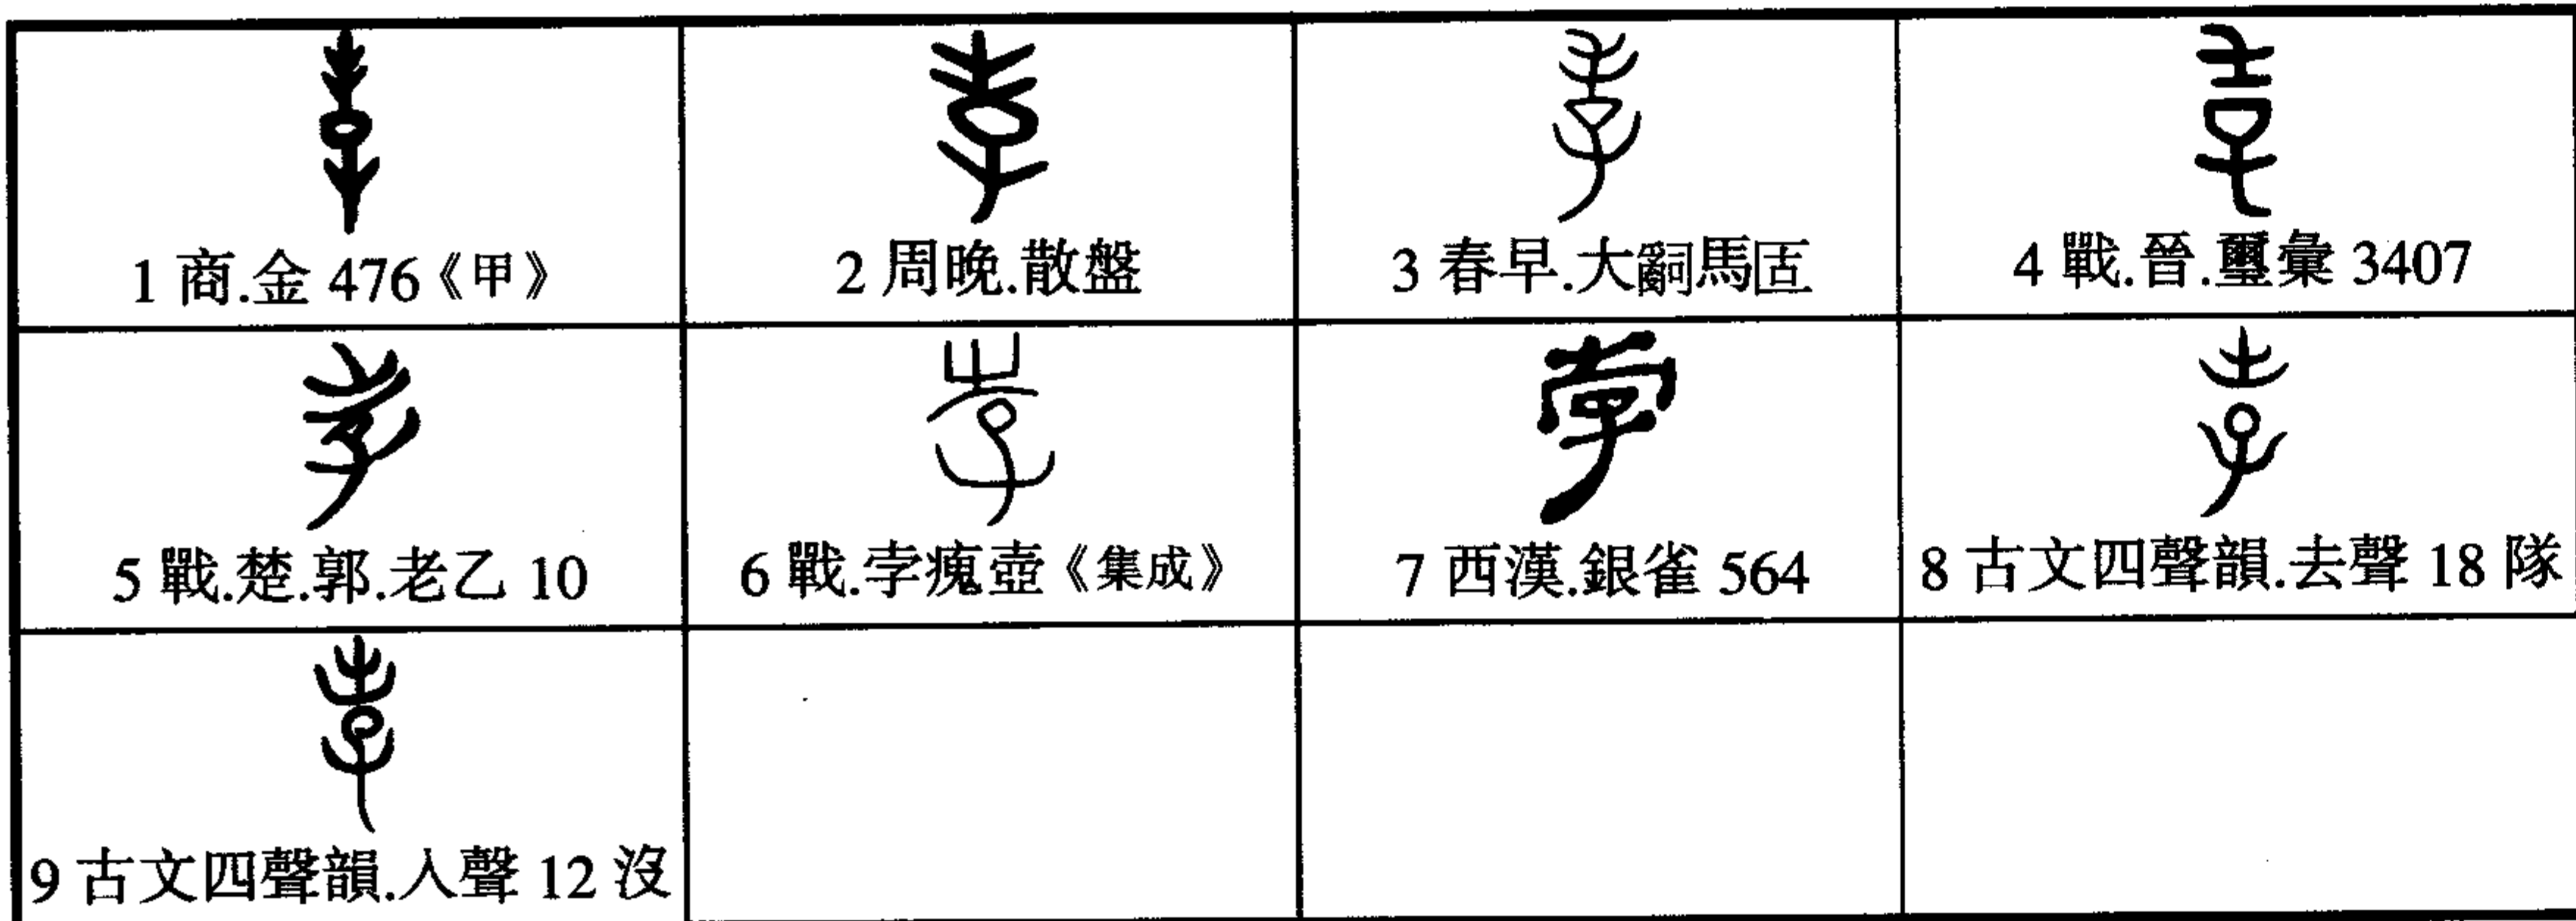 1 商.金 476《甲》
2 周晚.散盤
3 春早.大嗣馬匿
4 戰.晉.璽彙 3407
5 戰.楚.郭.老乙 10
6 戰.孛㾯壺《集成》
7 西漢.銀雀 564
8 古文四聲韻.去聲 18 隊
9 古文四聲韻.入聲 12 沒